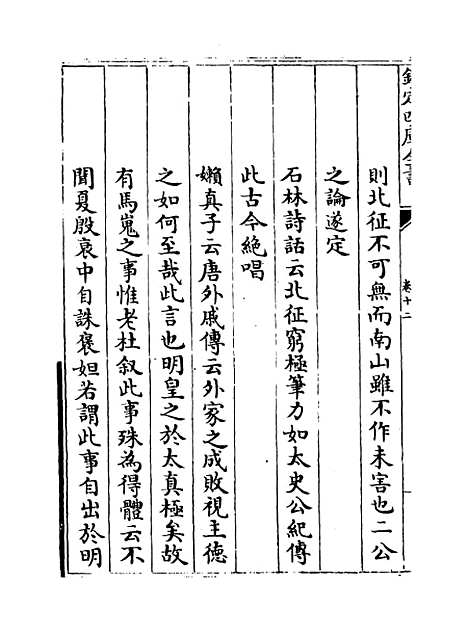 欽定四庫全書
卷十二
則北征不可無而南山雖不作未害也二公
之論遂定
石林詩話云北征窮極筆力如太史公紀傳
此古今絶唱
嬾真子云唐外戚傳云外家之成敗視主徳
之如何至哉此言也明皇之於太真極矣故
有馬嵬之事惟老杜叙此事殊為得體云不
聞夏殷衰中自誅褒妲若謂此事自出於明